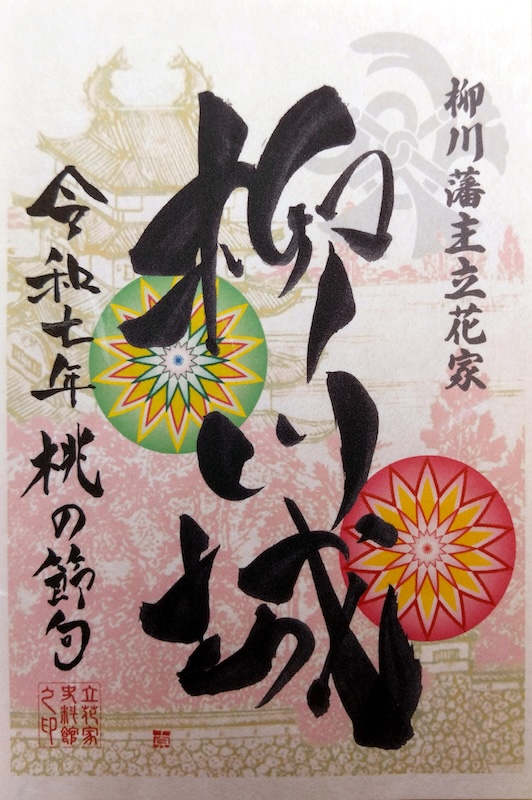 柳川藩主立花家
柳川城
令和七年 桃の節句
立花家
史料館
之印